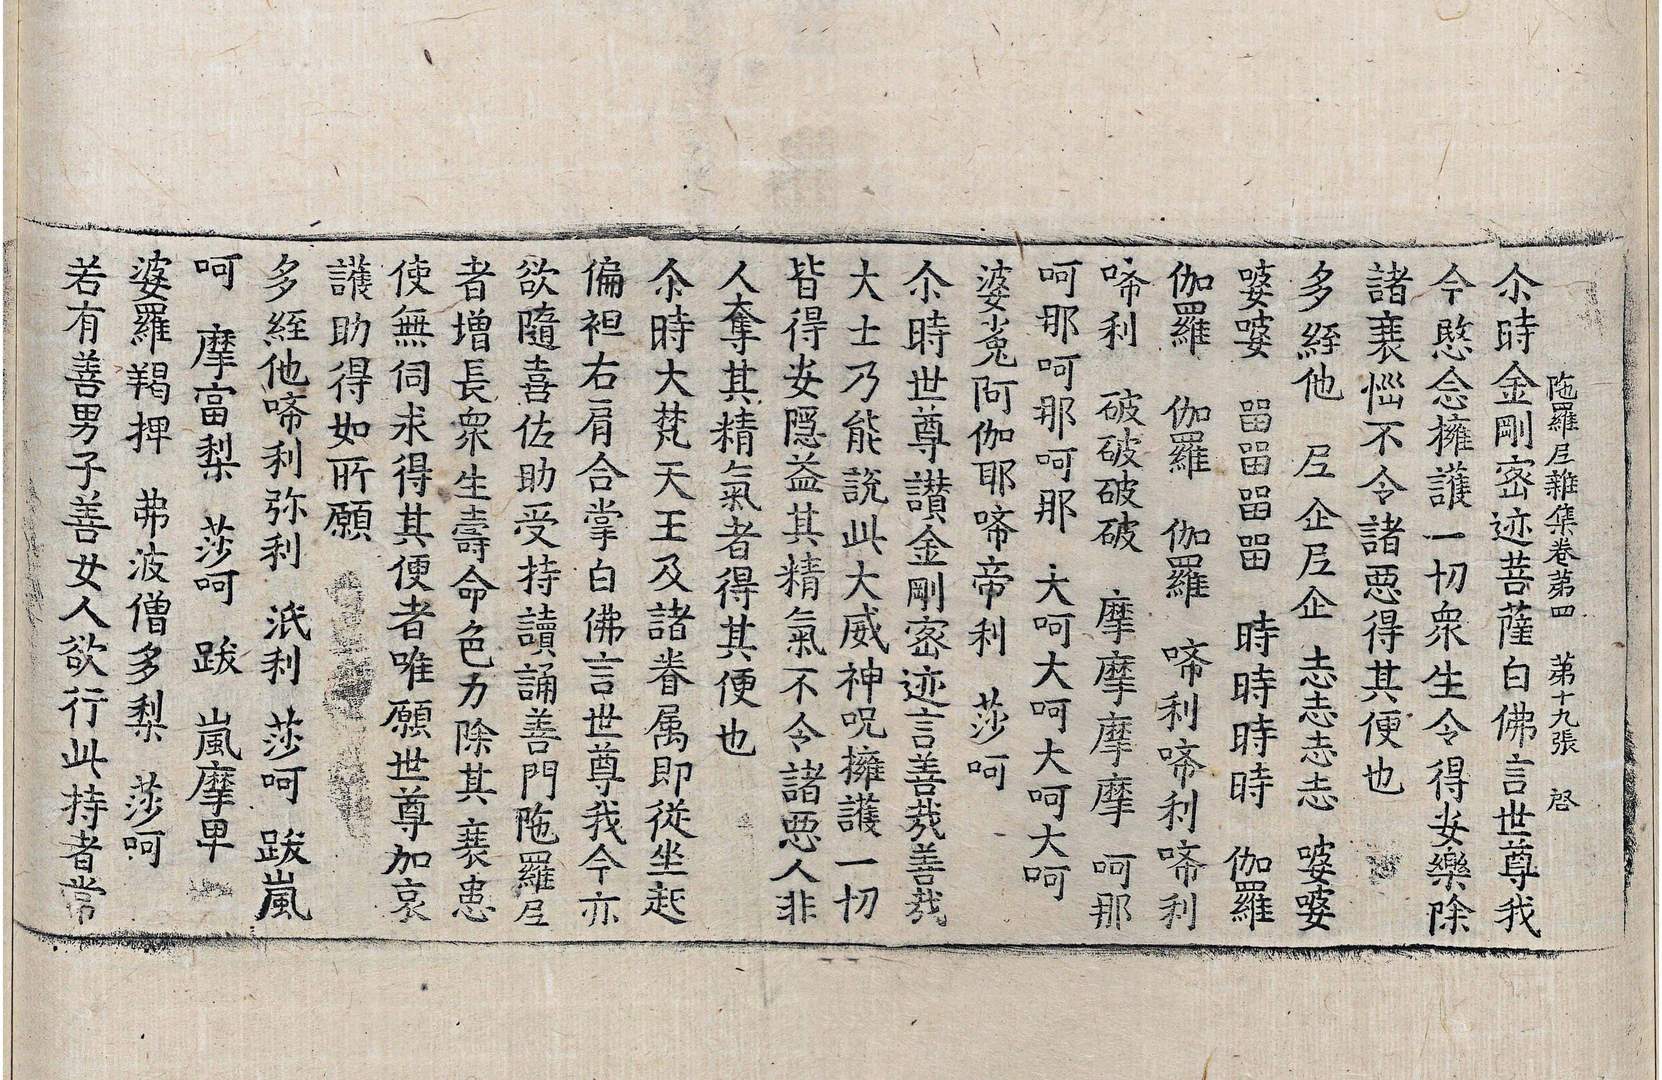 陁羅尼雜集卷第四　第十九張　啓
尒時金剛密迹菩薩白佛言世尊我
今愍念擁護一切衆生令得安樂除
諸衰惱不令諸惡得其便也
多絰他　𡰱企𡰱企　志志志志　婆婆
婆婆　㽞㽞㽞㽞　時時時時　伽羅
伽羅　伽羅　伽羅　啼利啼利啼利
啼利　破破破破　摩摩摩摩　呵那
呵那呵那呵那　大呵大呵大呵大呵
婆㝹阿伽耶啼帝利　莎呵
尒時世尊讃金剛密迹言善㢤善㢤
大士乃能說此大威神呪擁護一切
皆得安隱益其精氣不令諸惡人非
人奪其精氣者得其便也
尒時大梵天王及諸眷属即從坐起
偏袒右肩合掌白佛言世尊我今亦
欲隨喜佐助受持讀誦善門陁羅尼
者增長衆生壽命色力除其衰患
使無伺求得其便者唯願世尊加哀
護助得如所願
多絰他啼利弥利　泜利　莎呵　跋嵐
呵　摩富梨　莎呵　跋　嵐摩卑
婆羅羯捭　弗波僧多梨　莎呵
若有善男子善女人欲行此持者常